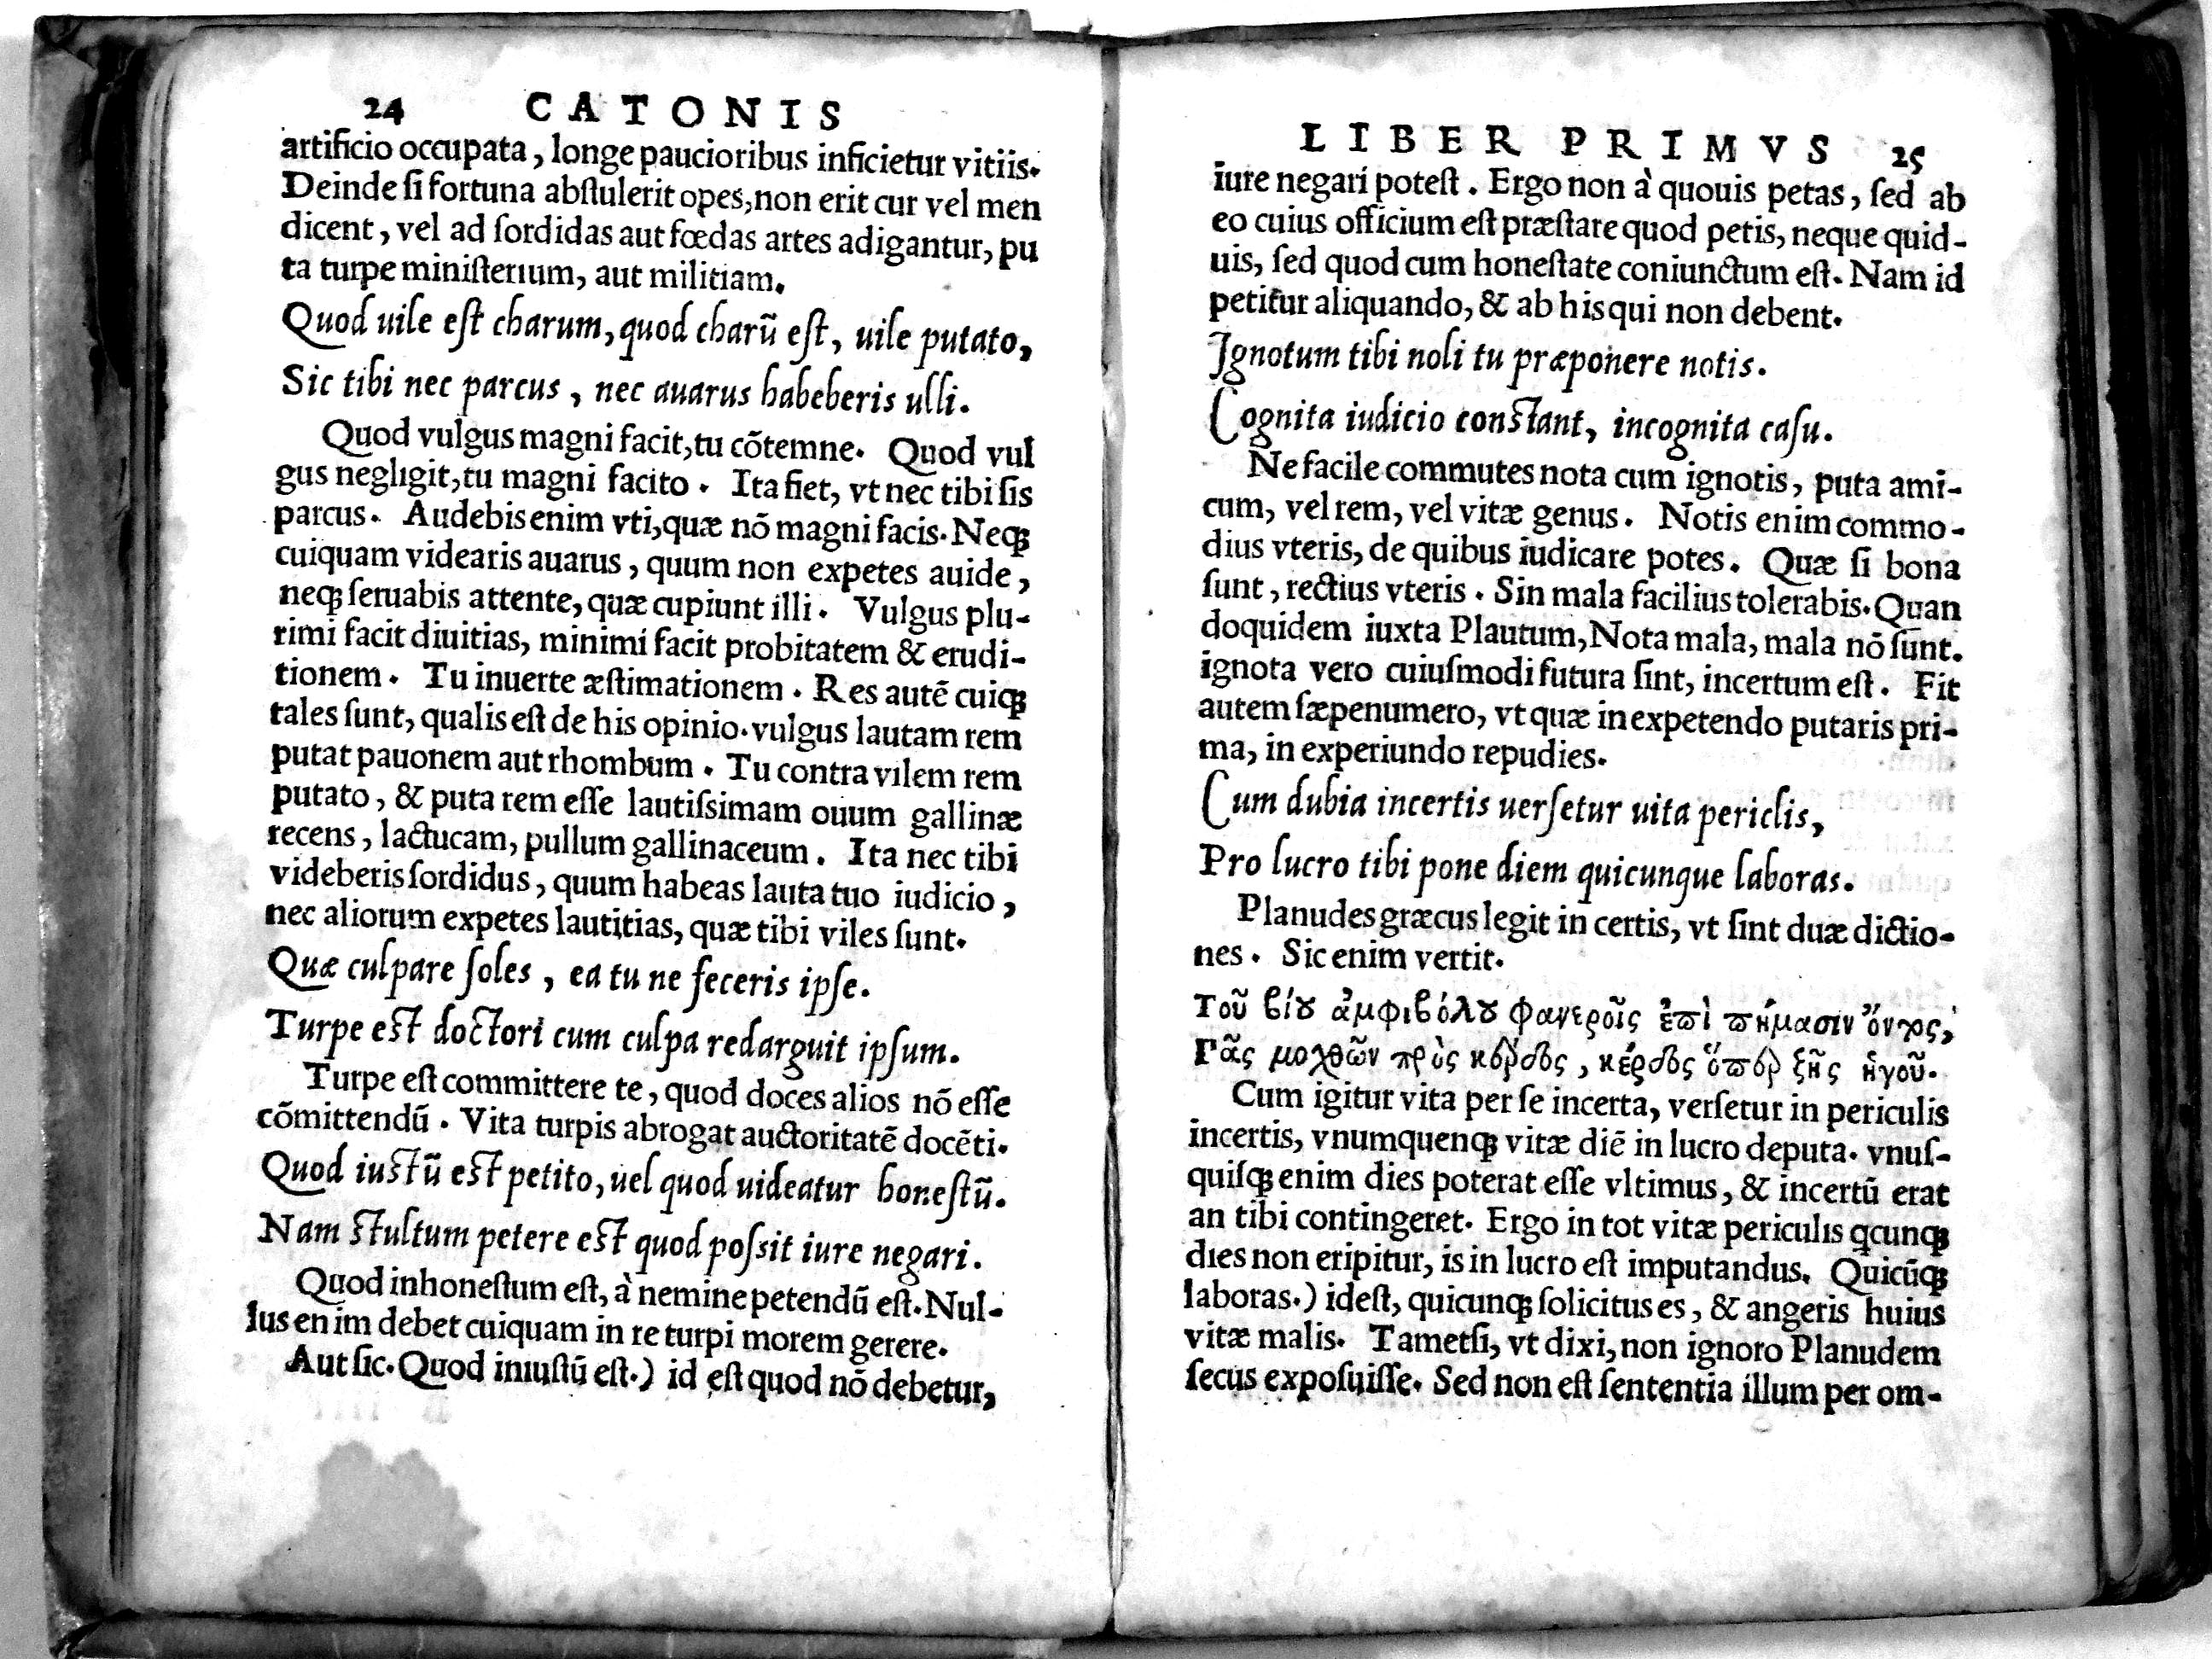 24 CATONIS
artificio occupata, longe paucioribus inficietur vitiis.
Deinde ſi fortuna abſtulerit opes, non erit cur vel men
dicent, vel ad ſordidas aut fœdas artes adigantur, pu
ta turpe miniſterium, aut militiam.
Quod uile eſt charum, quod charũ eſt, uile putato,
Sic tibi nec parcus, nec auarus habeberis ulli.
Quod vulgus magni facit, tu cõtemne. Quod vul
gus negligit, tu magni facito. Ita fiet, vt nec tibi ſis
parcus. Audebis enim vti, quæ nõ magni facis. Neqꝫ
cuiquam videaris auarus, quum non expetes auide,
neqꝫ ſeruabis attente, quæ cupiunt illi. Vulgus plu-
rimi facit diuitias, minimi facit probitatem & erudi-
tionem. Tu inuerte æſtimationem. Res autẽ cuiqꝫ
tales ſunt, qualis eſt de his opinio. vulgus lautam rem
putat pauonem aut rhombum. Tu contra vilem rem
putato, & puta rem eſſe lautiſsimam ouum gallinæ
recens, lactucam, pullum gallinaceum. Ita nec tibi
videberis ſordidus, quum habeas lauta tuo iudicio,
nec aliorum expetes lautitias, quæ tibi viles ſunt.
Quæ culpare ſoles, ea tu ne feceris ipſe.
Turpe eſt doctori cum culpa redarguit ipſum.
Turpe eſt committere te, quod doces alios nõ eſſe
cõmittendũ. Vita turpis abrogat auctoritatẽ docẽti.
Quod iuſtũ eſt petito, uel quod uideatur honeſtũ.
Nam ſtultum petere eſt quod poſsit iure negari.
Quod inhoneſtum eſt, à nemine petendũ eſt. Nul-
lus enim debet cuiquam in re turpi morem gerere.
Aut ſic. Quod iniuſtũ eſt.) id eſt quod nõ debetur,
LIBER PRIMVS 25
iure negari poteſt. Ergo non à quouis petas, ſed ab
eo cuius officium eſt præſtare quod petis, neque quid-
uis, ſed quod cum honeſtate coniunctum eſt. Nam id
petitur aliquando, & ab his qui non debent.
Ignotum tibi noli tu præponere notis.
Cognita iudicio conſtant, incognita caſu.
Ne facile commutes nota cum ignotis, puta ami-
cum, vel rem, vel vitæ genus. Notis enim commo-
dius vteris, de quibus iudicare potes. Quæ ſi bona
ſunt, rectius vteris. Sin mala facilius tolerabis. Quan
doquidem iuxta Plautum, Nota mala, mala nõ ſunt.
ignota vero cuiuſmodi futura ſint, incertum eſt. Fit
autem ſæpenumero, vt quæ in expetendo putaris pri-
ma, in experiundo repudies.
Cum dubia incertis uerſetur uita periclis,
Pro lucro tibi pone diem quicunque laboras.
Planudes græcus legit in certis, vt ſint duæ dictio-
nes. Sic enim vertit.
Τοῦ βίȣ ἀμφιβόλȣ φανεροῖς ἐπὶ πήμασιν ὄντος,
Γᾶς μοχθῶν πρὸς κέρδος, κέρδος ὅπερ ξῆς ἡγοῦ.
Cum igitur vita per ſe incerta, verſetur in periculis
incertis, vnumquenqꝫ vitæ diẽ in lucro deputa. vnuſ-
quiſqꝫ enim dies poterat eſſe vltimus, & incertũ erat
an tibi contingeret. Ergo in tot vitæ periculis qcunqꝫ
dies non eripitur, is in lucro eſt imputandus. Quicũqꝫ
laboras.) ideſt, quicunqꝫ ſolicitus es, & angeris huius
vitæ malis. Tametſi, vt dixi, non ignoro Planudem
ſecus expoſuiſſe. Sed non eſt ſententia illum per om-